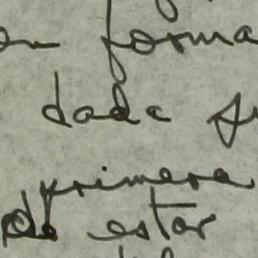 forma
dada
primera
de estar